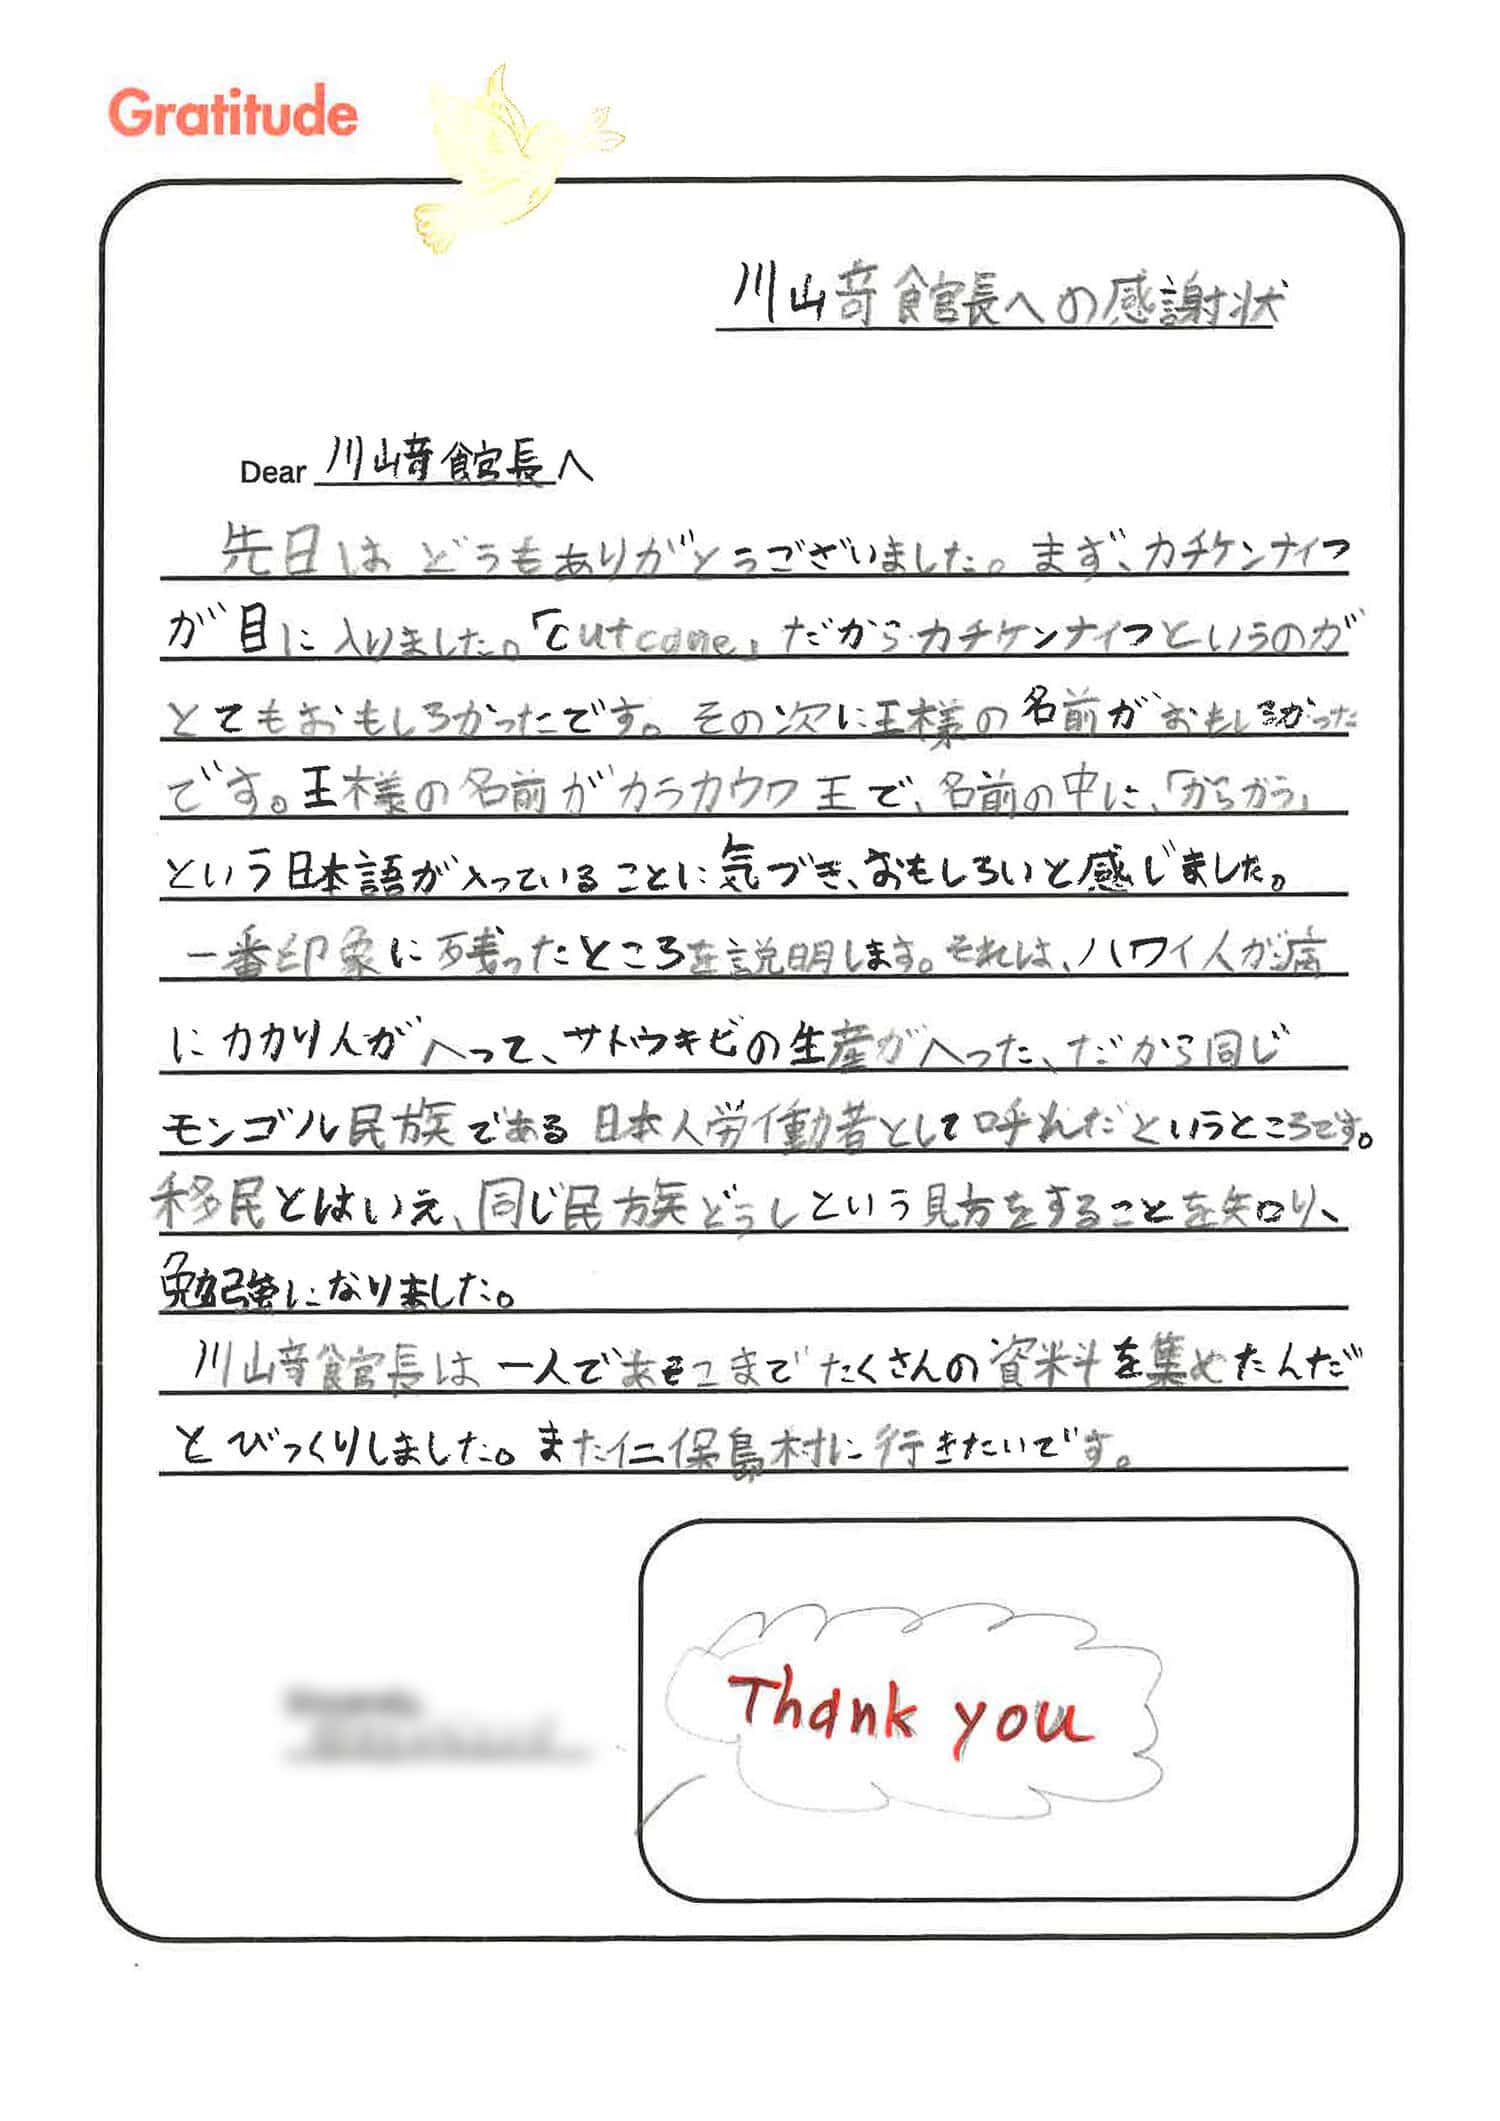 Gratitude
川﨑館長への感謝状
Dear 川﨑館長へ
先日は どうもありがとうございました。まず、カチケンナイフ
が目に入りました。「cutcane」だからカチケンナイフというのが
とてもおもしろかったです。その次に王様の名前がおもしろかった
です。王様の名前がカラカウワ王で、名前の中に、「からかう」
という日本語が入っていることに気づき、おもしろいと感じました。
一番印象に残ったところを説明します。それは、ハワイ人が病
にカカリ人がへって、サトウキビの生産がへった、だから同じ
モンゴル民族である日本人労働者として呼んだというところです。
移民とはいえ、同じ民族どうしという見方をすることを知り、
勉強になりました。
川﨑館長は一人であそこまでたくさんの資料を集めたんだ
とびっくりしました。また仁保島村に行きたいです。
Thank you